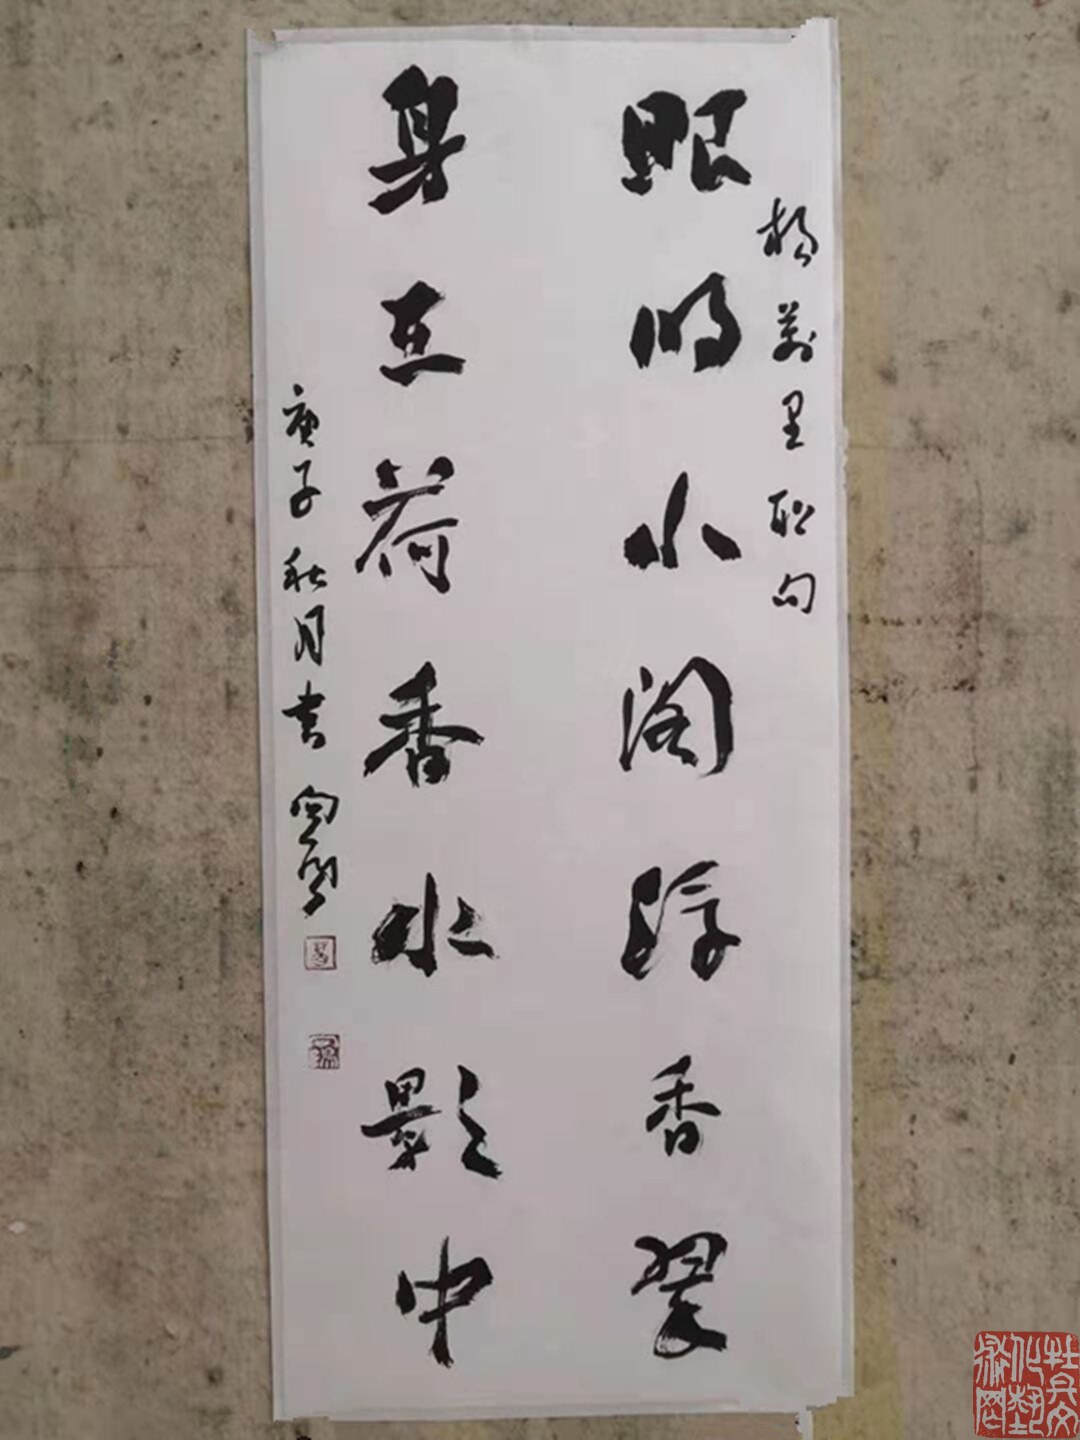 楊萬里联句
眼明小阁浮香翠
身在荷香水影中
庚子秋月书